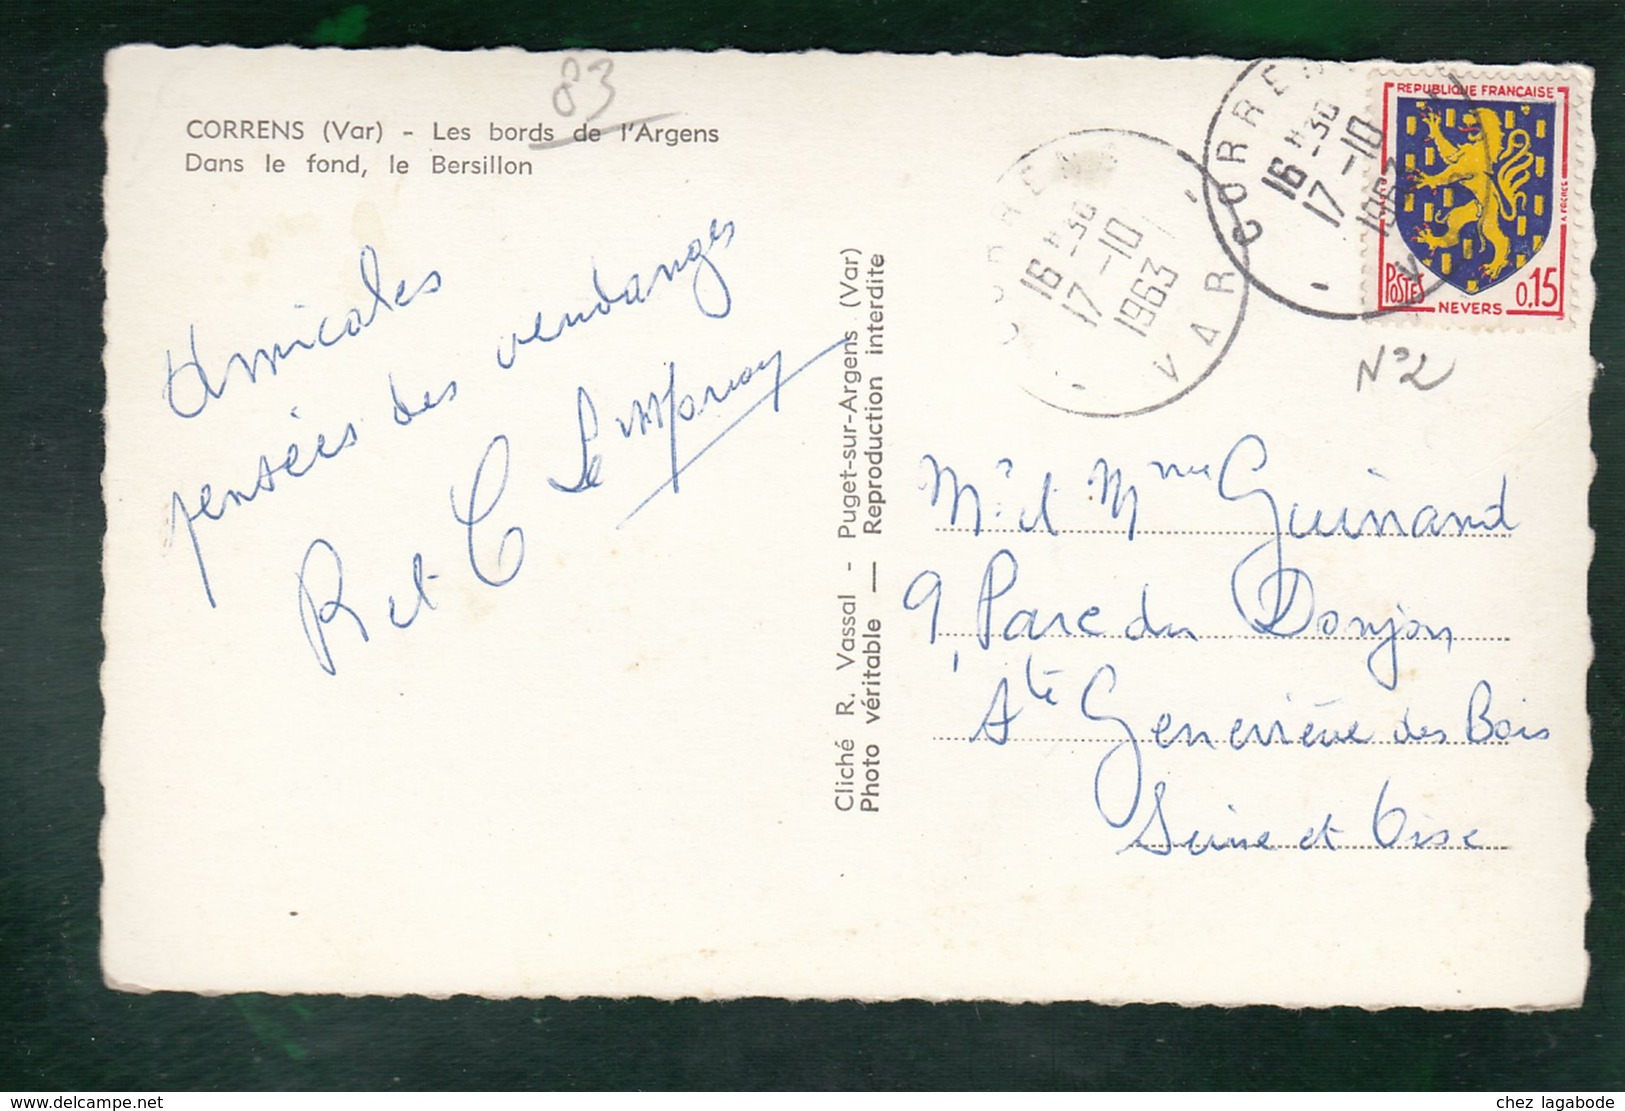 83
CORRENS (Var) - Les bords de l'Argens
Dans le fond, le Bersillon
Amicales
pensées des vendanges
R et C Le
Cliché R. Vassal - Puget-sur-Argens (Var)
Photo véritable — Reproduction interdite
CORRENS
16 H -30
17 -10
1963
VAR
CORRENS
16 H -30
17 -10
1963
V
REPUBLIQUE FRANÇAISE
POSTES
0.15
NEVERS
N°2
Mr et Mme Guinand
9, Parc du Donjon
Ste Geneviève des Bois
Seine et Oise
chez lagabode
delcampe.net